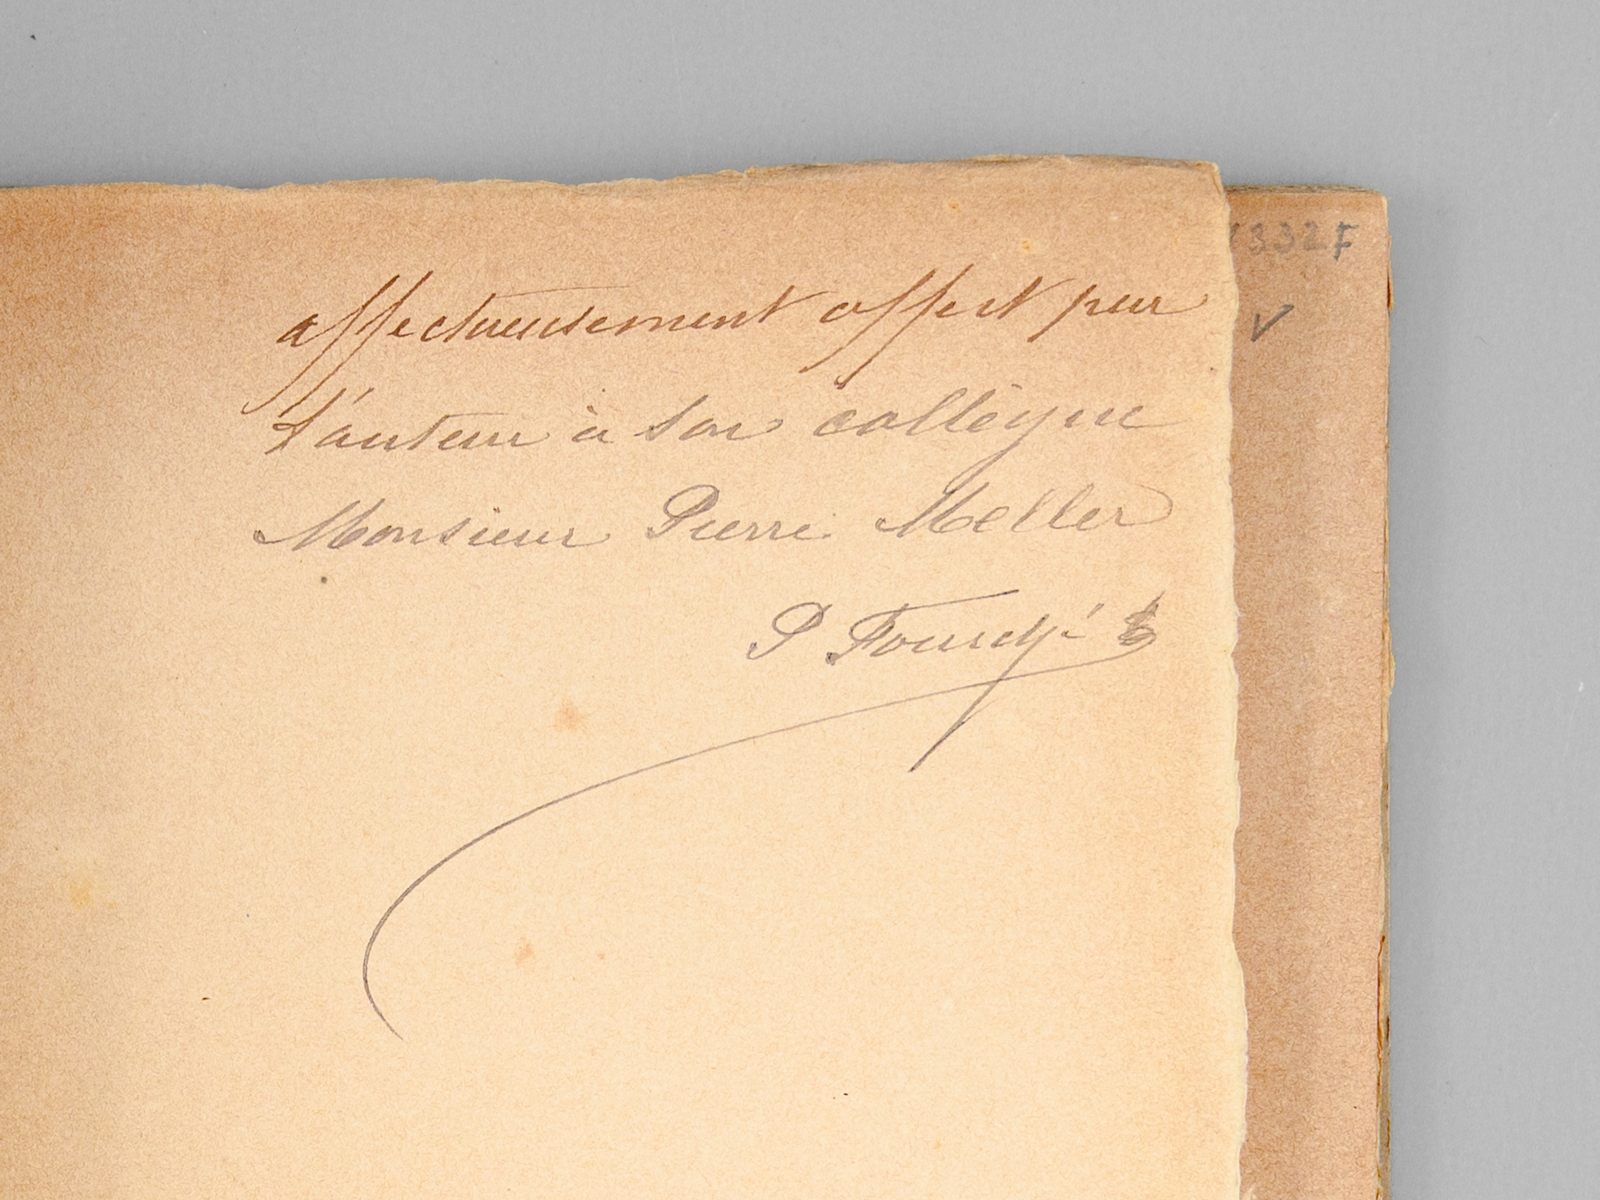 affectueusement offert par
l'auteur à son collègue
Monsieur Pierre Meller
P Fourché
332 F